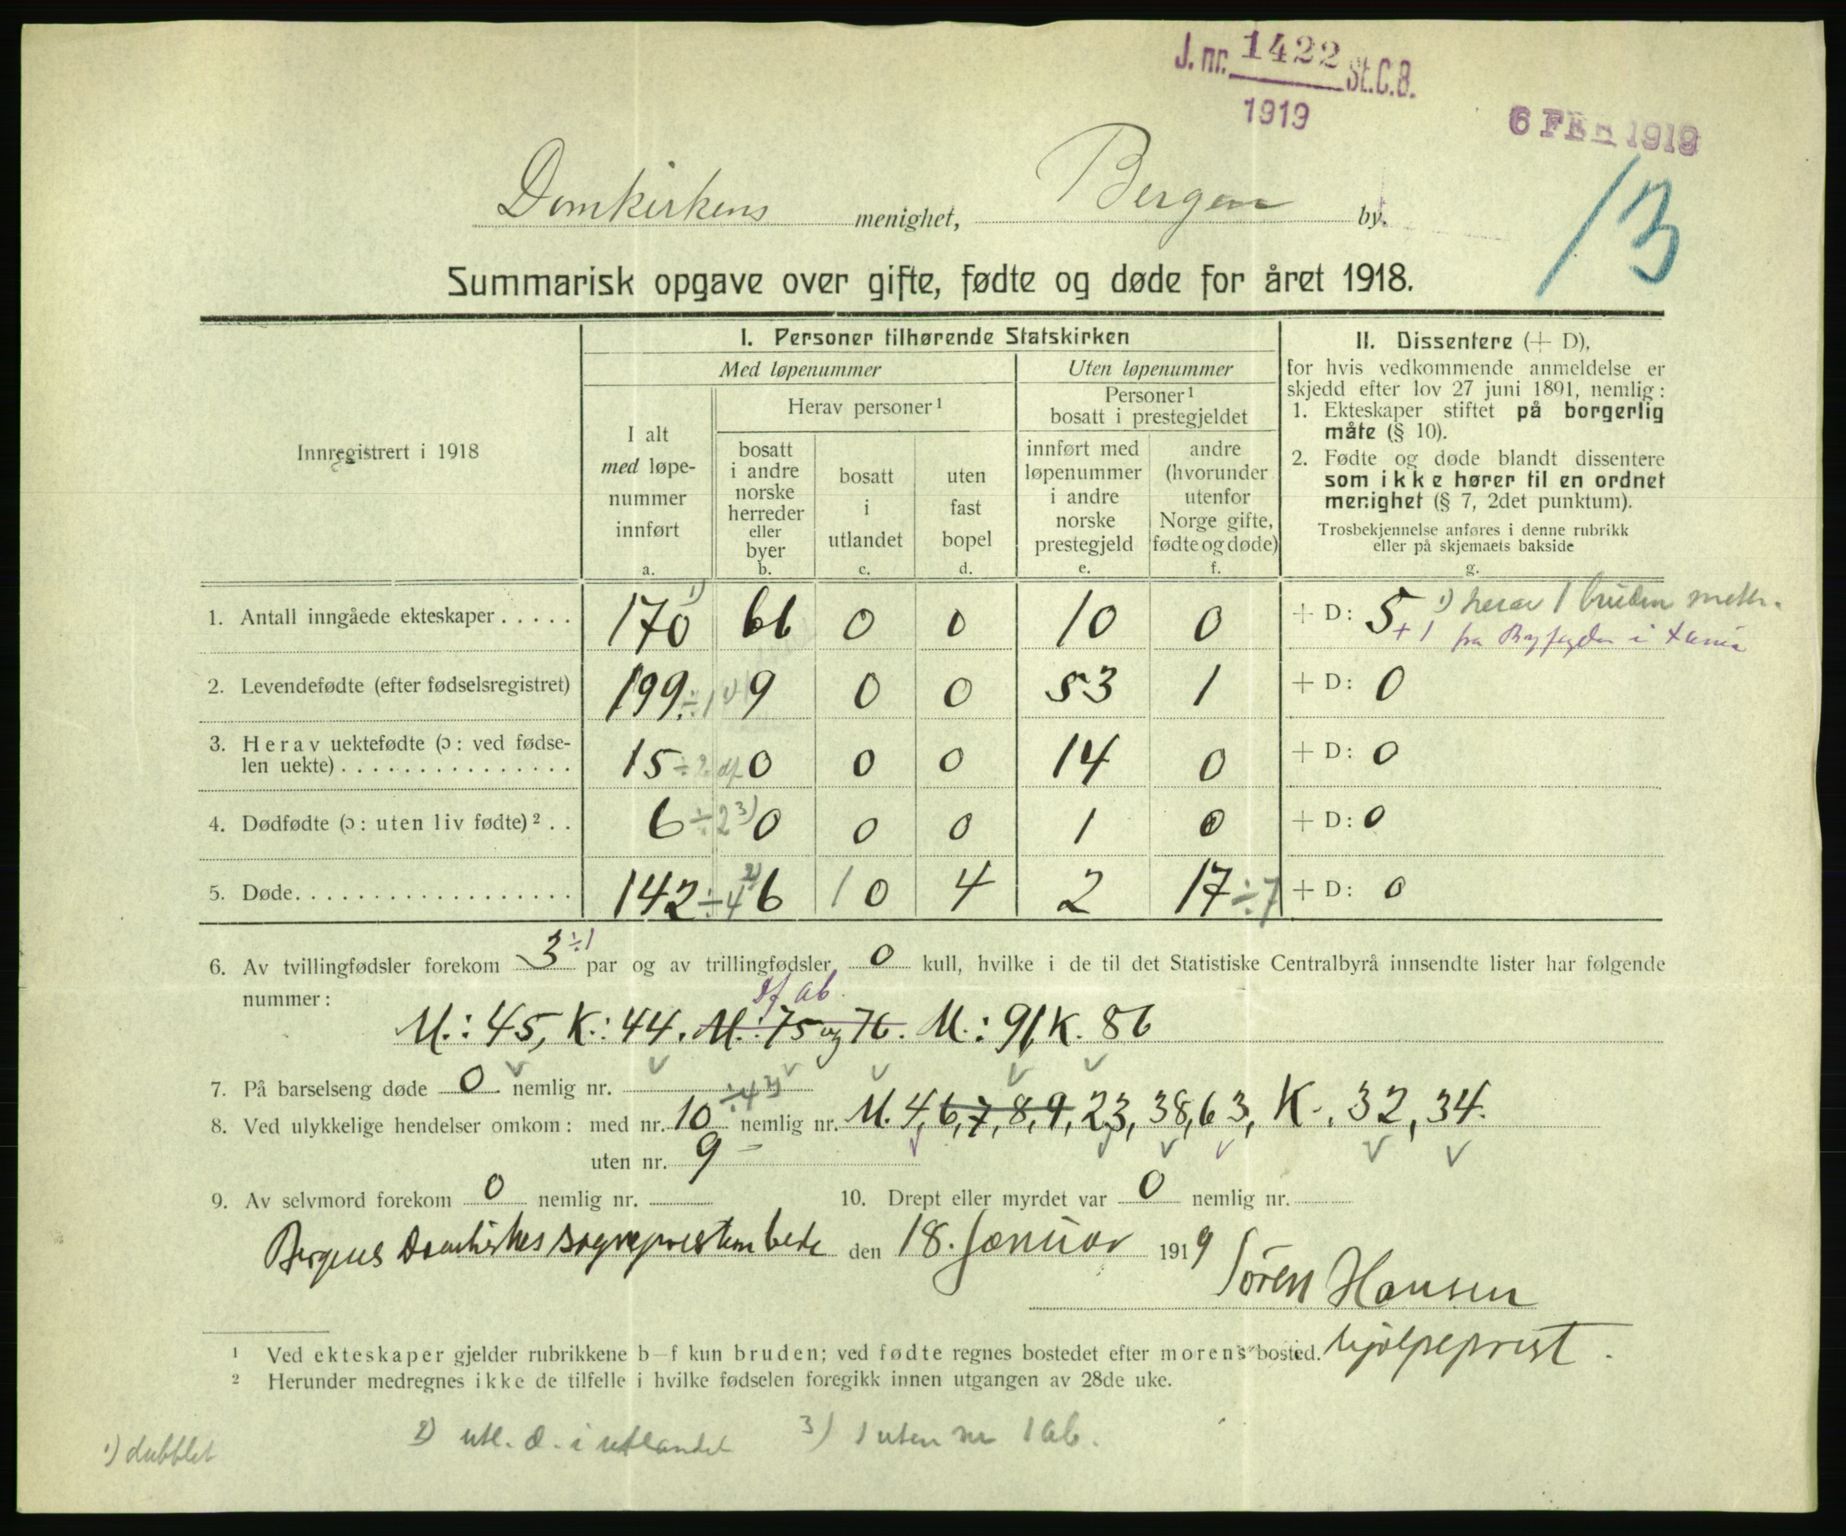 J. nr. 1422 St.C.B.
1919
6 FEB 1919
13
Domkirkens menighet, Bergen by.
Summarisk opgave over gifte, fødte og døde for året 1918.
Innregistrert i 1918
I. Personer tilhørende Statskirken
Med løpenummer
Uten løpenummer
I alt
med løpe-
nummer
innført
a.
Herav personer ¹
bosatt
i andre
norske
herreder
eller
byer
b.
bosatt
i
utlandet
c.
uten
fast
bopel
d.
Personer ¹
bosatt i prestegjeldet
innført med
løpenummer
i andre
norske
prestegjeld
e.
andre
(hvorunder
utenfor
Norge gifte,
fødte og døde)
f.
II. Dissentere (+ D),
for hvis vedkommende anmeldelse er
skjedd efter lov 27 juni 1891, nemlig:
1. Ekteskaper stiftet på borgerlig
måte (§ 10).
2. Fødte og døde blandt dissentere
som ikke hører til en ordnet
menighet (§ 7, 2det punktum).
Trosbekjennelse anføres i denne rubrikk
eller på skjemaets bakside
g.
1. Antall inngåede ekteskaper . . . . . 170 66 0 0 10 0 + D: 5 +1
¹) herav 1 bruden
fra i
2. Levendefødte (efter fødselsregistret) 199 ÷1 ¹) 9 0 0 53 1 + D: 0
3. Herav uektefødte (ɔ: ved fødse-
len uekte) . . . . . . . . . . . . . . . 15 ÷2 df 0 0 0 14 0 + D: 0
4. Dødfødte (ɔ: uten liv fødte) ² . . 6 ÷2 ³) 0 0 0 1 0 + D: 0
5. Døde. . . . . . . . . . . . . . . . . . 142 ÷4 ²) 6 1 0 4 2 17 ÷7 + D: 0
6. Av tvillingfødsler forekom 3 ÷1 par og av trillingfødsler 0 kull, hvilke i de til det Statistiske Centralbyrå innsendte lister har følgende
nummer:
df ab.
M.: 45, K.: 44. M.: 75 og 76. M.: 91, K. 86
7. På barselseng døde 0 nemlig nr.
8. Ved ulykkelige hendelser omkom: med nr. 10 ÷4 ²) nemlig nr. M. 4, 6, 7, 8, 9, 23, 38, 63, K., 32, 34.
uten nr. 9 –
9. Av selvmord forekom 0 nemlig nr.
10. Drept eller myrdet var 0 nemlig nr.
Bergens Domkirkes sogneprestembede den 18. Januar 1919
Sören Hansen
hjelpeprest.
¹ Ved ekteskaper gjelder rubrikkene b–f kun bruden; ved fødte regnes bostedet efter morens bosted.
² Herunder medregnes ikke de tilfelle i hvilke fødselen foregikk innen utgangen av 28de uke.
¹) dubblet
²) utl. d. i utlandet
³) 1 uten nr 1 ab.